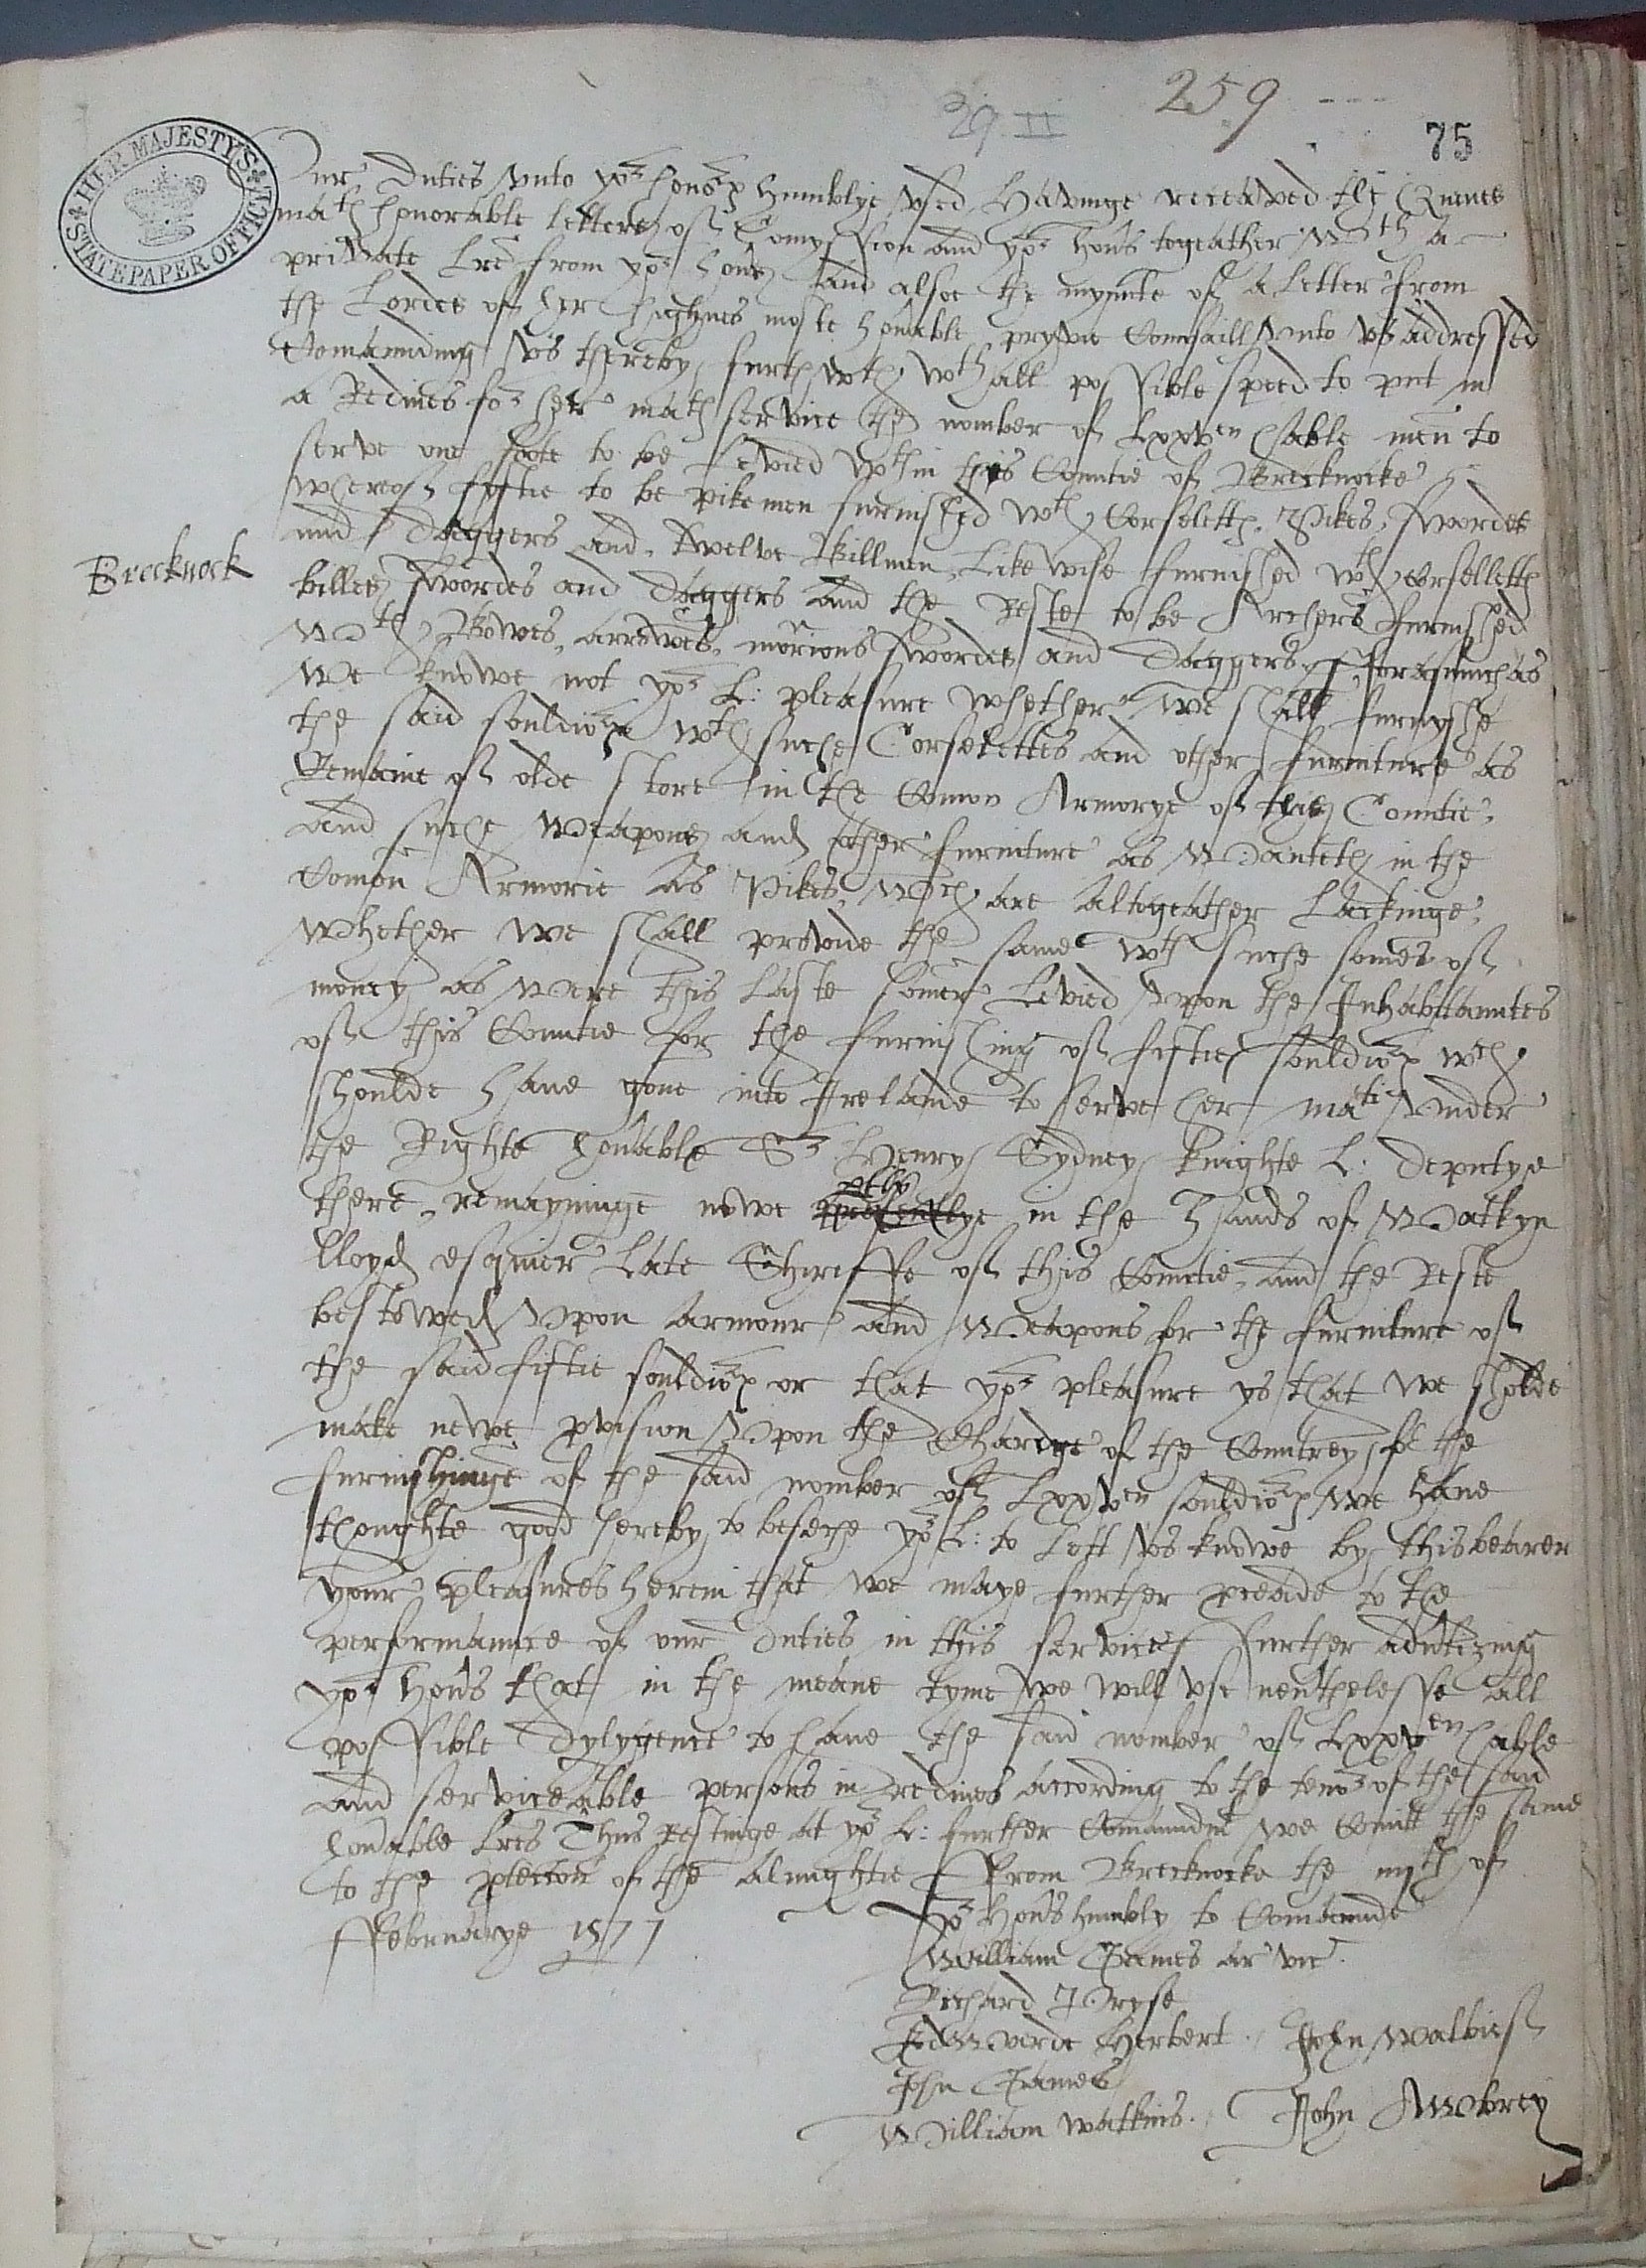 259
29. II
75
HER MAJESTY'S STATE PAPER OFFICE
Our Duties vnto yor honors humblye vsed, Havinge receaved the Quenes
maties honorable letters of Comyssion and yor hon's togeather wth a
private Lre from yor hon's And alsoe the mynute of a Letter from
the Lordes of her highnes moste honable pryvie Counsaill vnto vs addressed
Comaunding vs thereby furthwth wth all possible speed to put in
a Redines for her maties service the nomber of Lxxven hable men to
serve one foote to be Levied wthin this Countie of Brecknocke
whereof fyftie to be pikemen furnished wth Corseletts, Pikes, swordes
and Daggers and twelve Billmen Likewise furnished wth corselletts
Brecknock
billes swordes and Daggers And the Reste to be Archers furnished
wth Bowes, arrowes, morions swordes and Daggers, fforasmuch as
we knowe not yor L: pleasure whether we shall furnyshe
the said souldiors wth suche Corselettes and other furniture as
Remaine of olde store in the Comon Armorye of this Countie,
and suche weapons and other furniture as wanteth in the
Comon Armorie as Pikes, wch are altogeather Lackinge,
whether we shall provide the same wth suche somes of
money as were this Laste somer Levied vpon the Inhabitauntes
of this Countie for the furnishing of fiftie souldiors wch
shoulde have gone into Irelande to serve her matie vnder
the Righte honable Sr Henry Sydney knighte L: deputye
there, remayninge nowe ptly presentlye in the hands of Watkyn
lloyd esquier Late Shireffe of this Countie, and the Reste
bestowed vpon armour and weapons for the furniture of
the said fiftie souldiors or that yor pleasure ys that we sholde
make newe pvision vpon the Chardge of the Countrey for the
furnishinge of the said nomber of Lxxven souldiors we have
thoughte good hereby to beseche yor L: to Lett vs knowe by this bearer
your pleasures herein that we maye further procede to the
performaunce of our duties in this service further advtizing
yor hon's that in the meane tyme we will vse nevthelesse all
possible dylygence to have the said nomber of Lxxven hable
and serviceable persons in redines according to the tenor of the said
honable Lres Thus Restinge at yor L: further Comaundmt we Comitt the same
to the ptection of the almightie ffrom Brecknocke the iiijth of
ffebruarye 1577
Yor Hon's humbly to Comaunde
William Games ar' vic'
Richard Pryse
Edwarde Herbert
John Walbief
John Games
William Watkins
John Awbrey